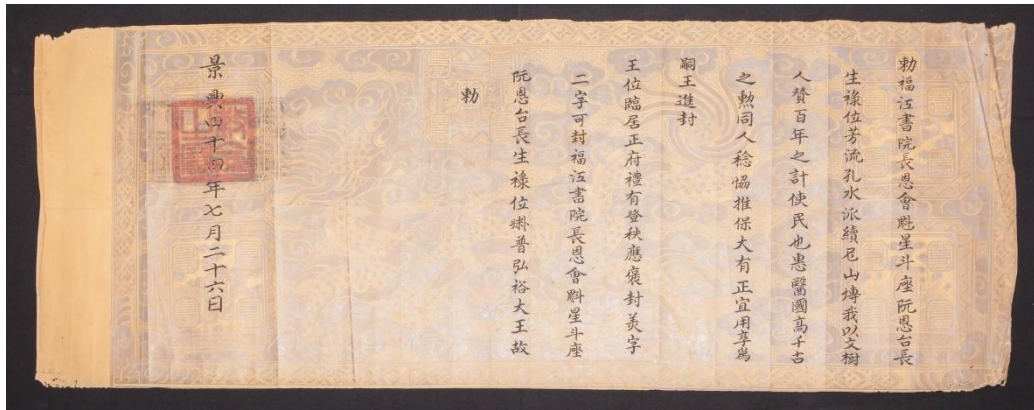 勅福江書院長恩會魁星斗座阮恩台長
生祿位芳流孔水派續尼山博我以文樹
人贊百年之計使民也惠醫國高千古
之勲同人稔協推保大有正宜用享爲
嗣王進封
王位臨居正府禮有登秩應褒封美字
二字可封福江書院長恩會魁星斗座
阮恩台長生祿位淵普弘裕大王故
勅
景興四十四年七月二十六日